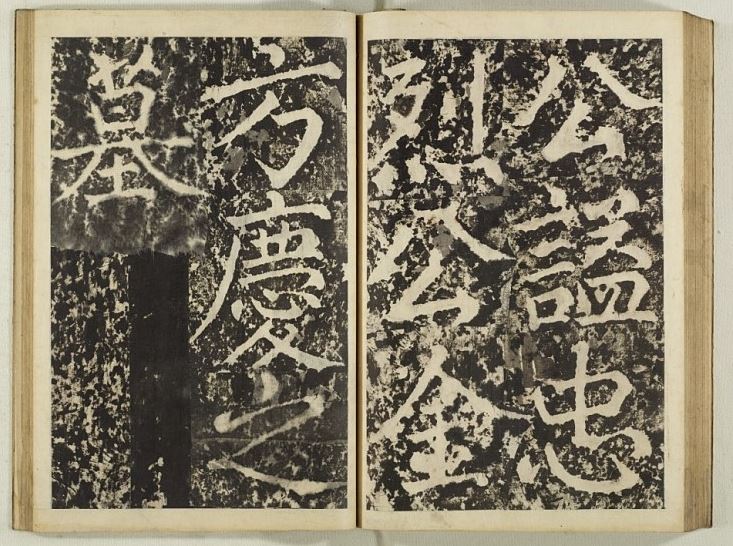 公謚忠
烈公金
方慶之
墓